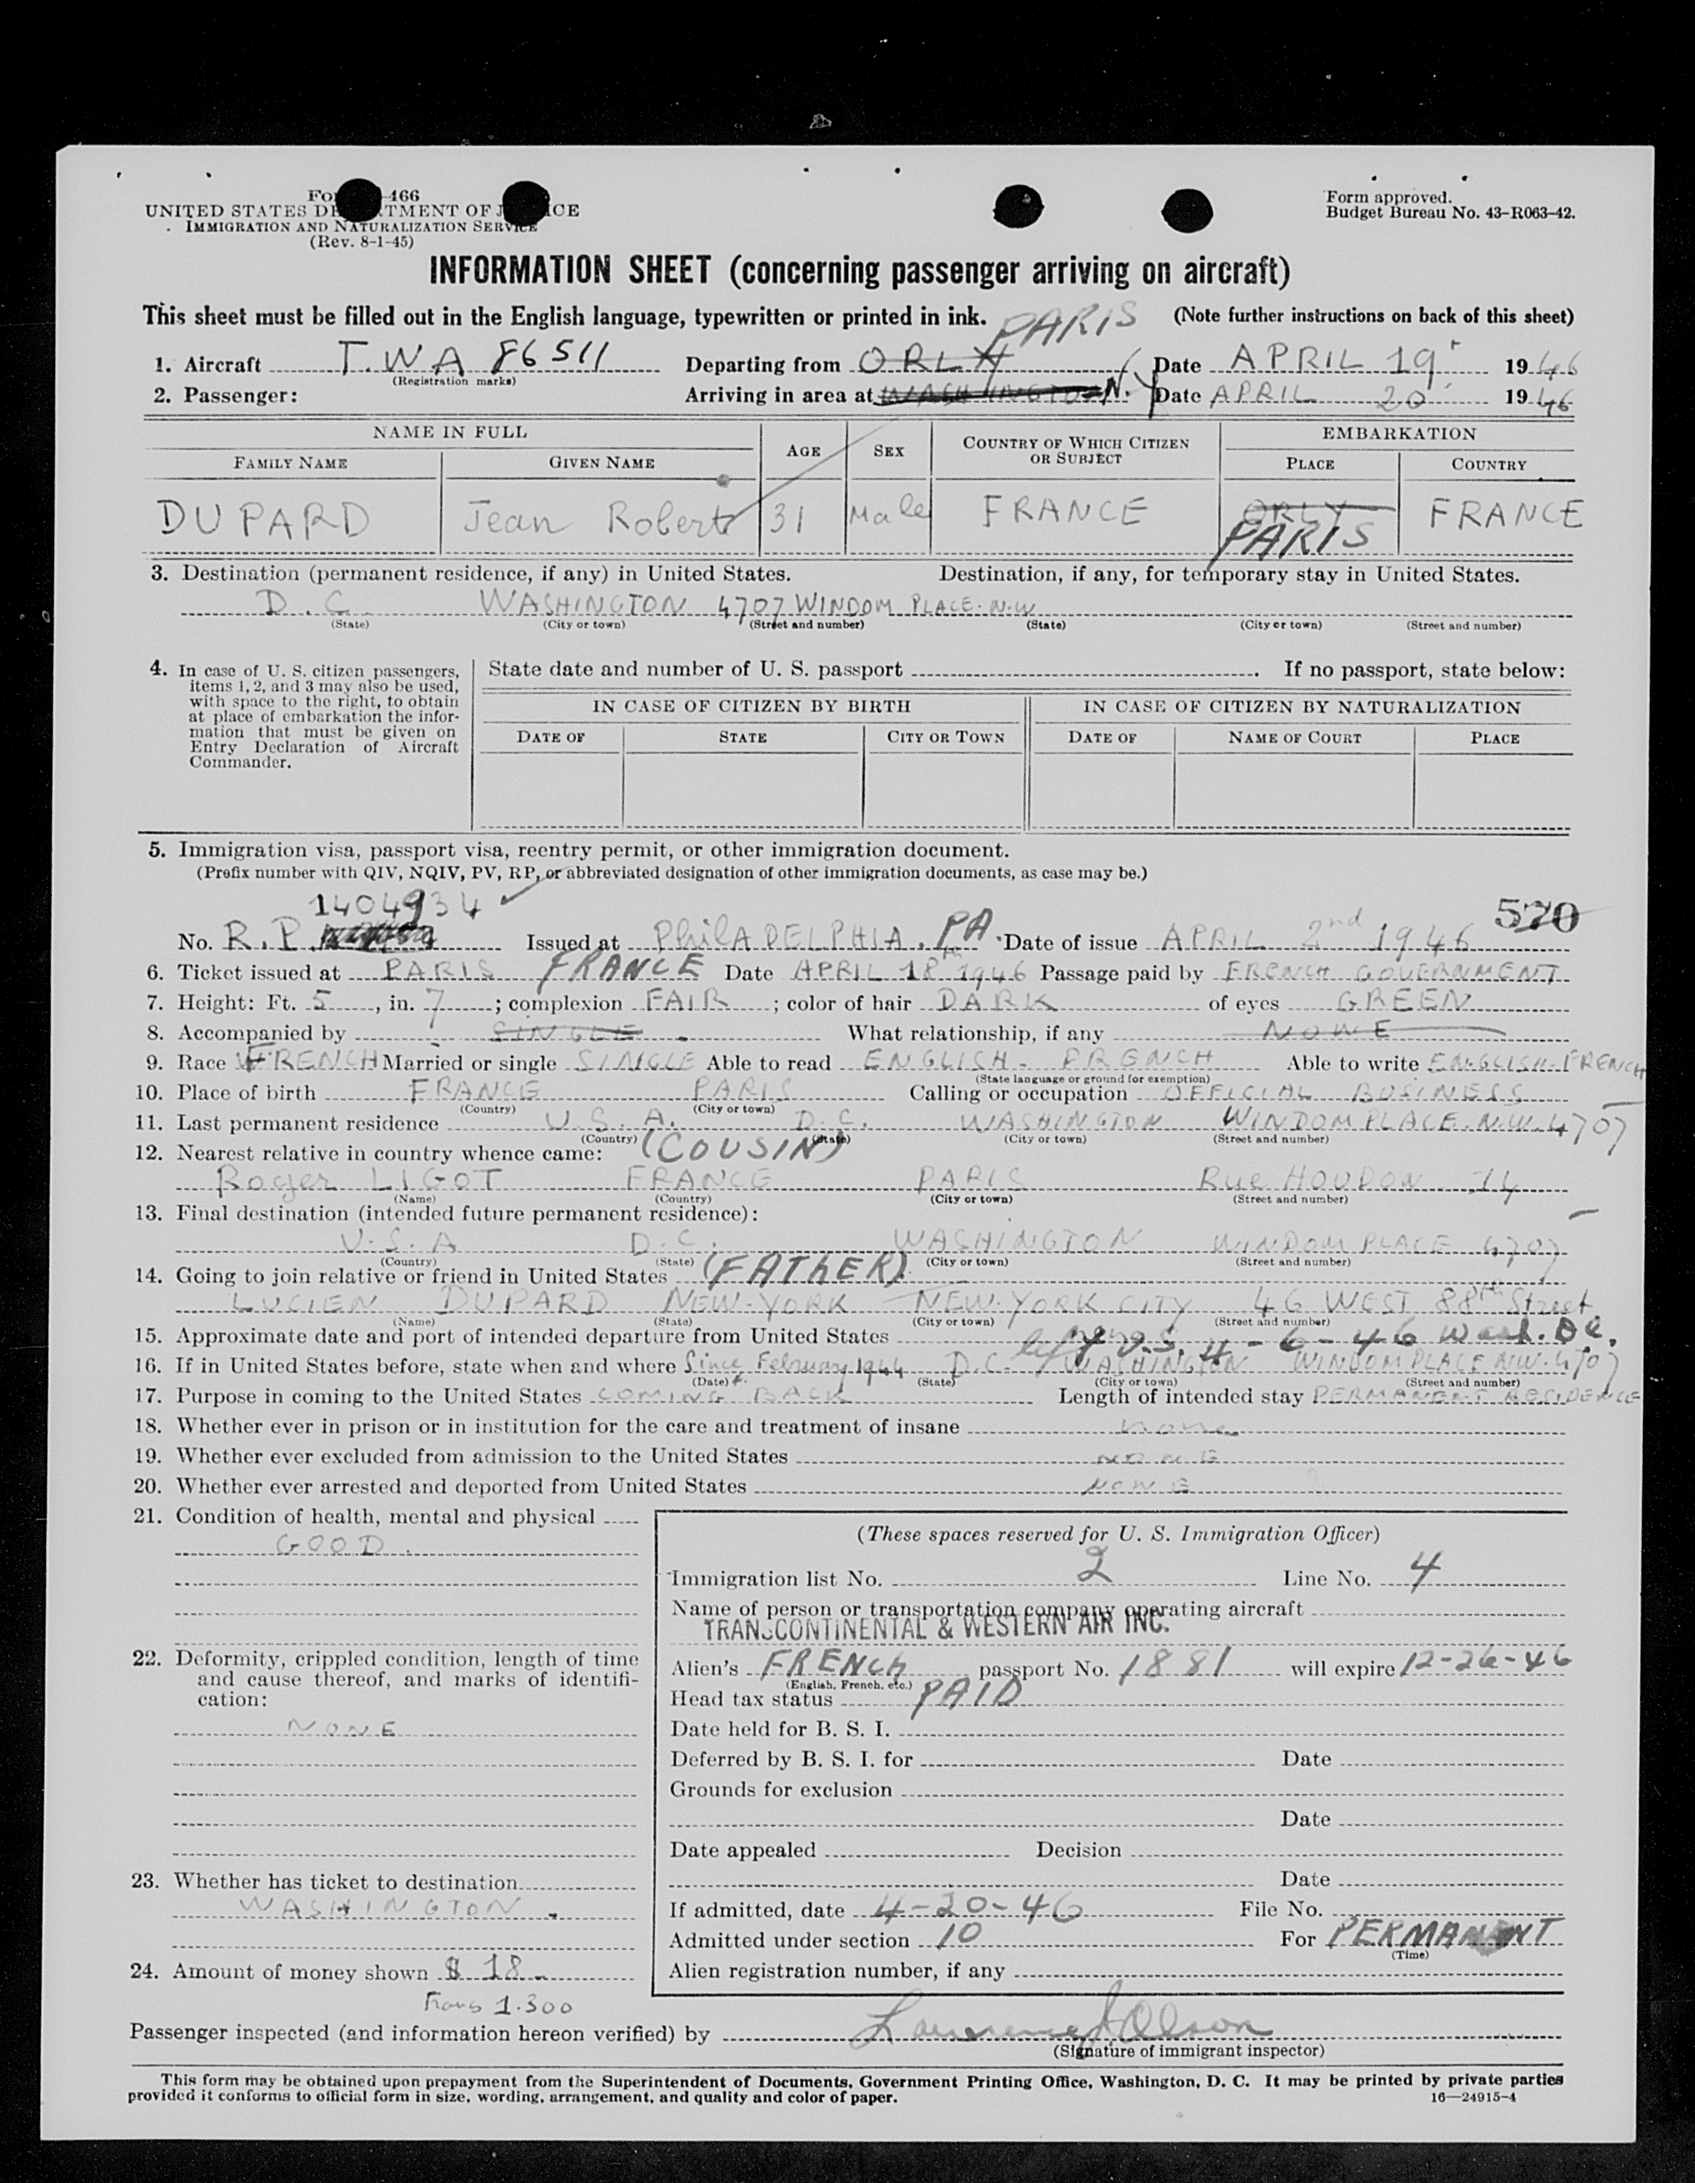 Form approved.
UNITED STATES OF
IMMIGRATION AND NATURALIZATION SERVICE
Budget Bureau No. 43-R063-42.
(Rev. 8-1-45)
INFORMATION SHEET (concerning passenger arriving on aircraft)
This sheet must be filled out in the English language, typewritten or printed in ink. (Note further instructions on back of this sheet)
PARIS
1. Aircraft T.W A 86511 Departing from ORLY Date APRIL 19 1946
(Registration marks)
2. Passenger: Arriving in area at WASHINGTON N.Y Date APRIL 20 1946
NAME IN FULL AGE SEX COUNTRY OF WHICH CITIZEN OR SUBJECT EMBARKATION
FAMILY NAME GIVEN NAME PLACE COUNTRY
DUPARD Jean Robert 31 Male FRANCE ORLY FRANCE
PARIS
3. Destination (permanent residence, if any) in United States. Destination, if any, for temporary stay in United States.
D.C. WASHINGTON 4707 WINDOM PLACE. N.W
(State) (City or town) (Street and number) (State) (City or town) (Street and number)
4. In case of U. S. citizen passengers, items 1, 2, and 3 may also be used, with space to the right, to obtain at place of embarkation the information that must be given on Entry Declaration of Aircraft Commander.
State date and number of U. S. passport If no passport, state below:
IN CASE OF CITIZEN BY BIRTH IN CASE OF CITIZEN BY NATURALIZATION
DATE OF STATE CITY OR TOWN DATE OF NAME OF COURT PLACE
5. Immigration visa, passport visa, reentry permit, or other immigration document.
(Prefix number with QIV, NQIV, PV, RP, or abbreviated designation of other immigration documents, as case may be.)
1404934
570
No. R.P Issued at PhilADELPHIA. PA Date of issue APRIL 2nd 1946
6. Ticket issued at PARIS FRANCE Date APRIL 18th 1946 Passage paid by FRENCH GOUVERNMENT
7. Height: Ft. 5, in. 7; complexion FAIR; color of hair DARK of eyes GREEN
8. Accompanied by SINGLE What relationship, if any NONE
9. Race FRENCH Married or single SINGLE Able to read ENGLISH - FRENCH Able to write ENGLISH-FRENCH
(State language or ground for exemption)
10. Place of birth FRANCE PARIS Calling or occupation OFFICIAL BUSINESS
(Country) (City or town)
11. Last permanent residence U.S.A. D.C. WASHINGTON WINDOM PLACE. N.W. 4707
(Country) (State) (City or town) (Street and number)
12. Nearest relative in country whence came: (COUSIN)
Roger LIGOT FRANCE PARIS Rue HOUDON 14
(Name) (Country) (City or town) (Street and number)
13. Final destination (intended future permanent residence):
U.S.A D.C. WASHINGTON WINDOM PLACE 4707
(Country) (State) (City or town) (Street and number)
14. Going to join relative or friend in United States (FATHER)
LUCIEN DUPARD NEW-YORK NEW.YORK CITY 46 WEST 88th Street
(Name) (State) (City or town) (Street and number)
15. Approximate date and port of intended departure from United States
left U.S. 4-6-46 Wash. DC.
16. If in United States before, state when and where Since February 1944 D.C. WASHINGTON WINDOM PLACE NW. 4707
(Date) (State) (City or town) (Street and number)
17. Purpose in coming to the United States COMING BACK Length of intended stay PERMANENT RESIDENCE
18. Whether ever in prison or in institution for the care and treatment of insane none
19. Whether ever excluded from admission to the United States NONE
20. Whether ever arrested and deported from United States NONE
21. Condition of health, mental and physical
GOOD.
(These spaces reserved for U. S. Immigration Officer)
Immigration list No. 2 Line No. 4
Name of person or transportation company operating aircraft
TRANSCONTINENTAL & WESTERN AIR INC.
22. Deformity, crippled condition, length of time and cause thereof, and marks of identification:
NONE
Alien's FRENCH passport No. 1881 will expire 12-26-46
(English, French, etc.)
Head tax status PAID
Date held for B. S. I.
Deferred by B. S. I. for Date
Grounds for exclusion
Date
Date appealed Decision
Date
23. Whether has ticket to destination
WASHINGTON.
If admitted, date 4-20-46 File No.
Admitted under section 10 For PERMANENT
(Time)
24. Amount of money shown $ 18
Alien registration number, if any
1.300
Passenger inspected (and information hereon verified) by Lawrence J Olson
(Signature of immigrant inspector)
This form may be obtained upon prepayment from the Superintendent of Documents, Government Printing Office, Washington, D. C. It may be printed by private parties
provided it conforms to official form in size, wording, arrangement, and quality and color of paper. 16—24915-4